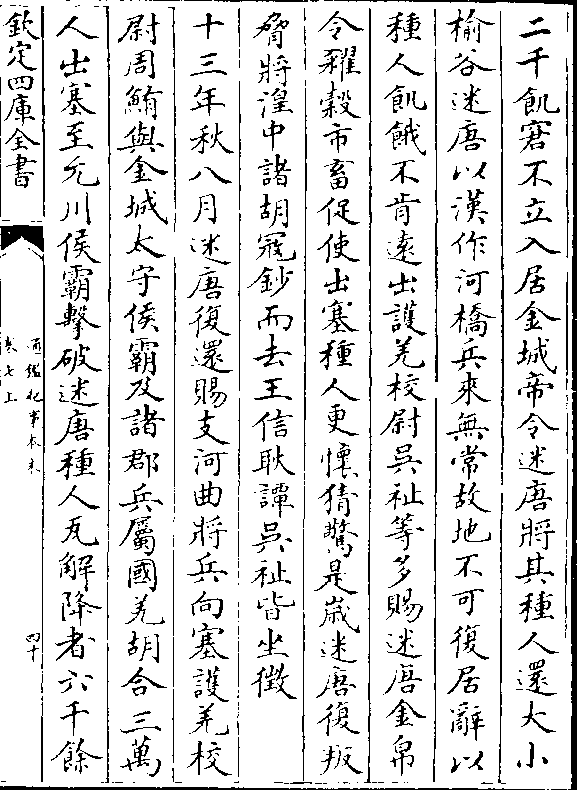 二千飢窘不立入居金城帝令迷唐將其種人還大小
榆谷迷唐以漢作河橋兵來無常故地不可復居辭以
種人飢餓不肯遠出護羌校尉吳祉等多賜迷唐金帛
令糴穀市畜促使出塞種人更懷猜驚是歲迷唐復叛
脅將湟中諸胡冦鈔而去王信耿譚吳祉皆坐徵
十三年秋八月迷唐復還賜支河曲將兵向塞護羌校
尉周鮪與金城太守侯霸及諸郡兵屬國羌胡合三萬
人出塞至允川侯霸擊破迷唐種人瓦解降者六千餘
欽定四庫全書
通鑑紀事本末
卷七上
四十